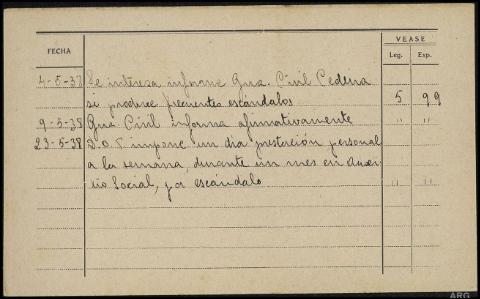 VEASE
FECHA
Leg. Exp.
4-5-38 Se interesa informe Gua. Civil Cedeira
si produce frecuentes escándalos 5 99
9-5-38 Gua Civil informa afirmativamente " "
23-5-38 D.O.P. impone un día prestación personal
a la semana, durante un mes en Auxi-
lio Social, por escándalo " "
ARG